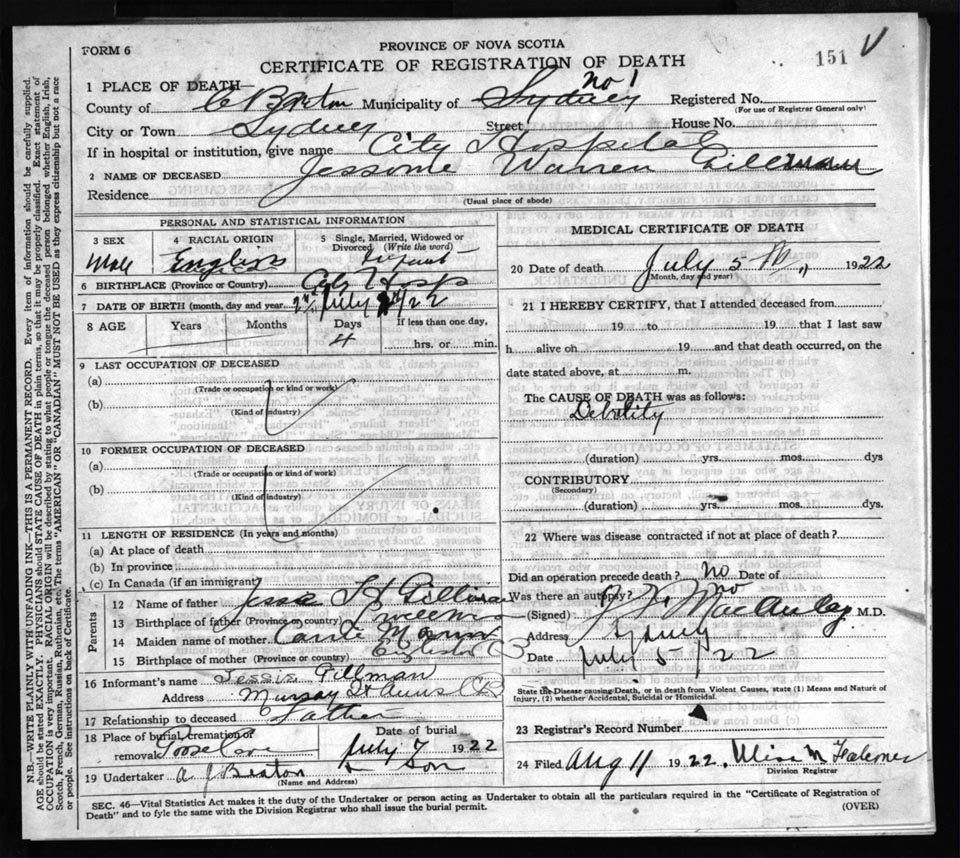 FORM 6
PROVINCE OF NOVA SCOTIA
CERTIFICATE OF REGISTRATION OF DEATH
151 V
1 PLACE OF DEATH—
County of C Breton Municipality of Sydney No 1 Registered No.
(For use of Registrar General only)
City or Town Sydney Street House No.
If in hospital or institution, give name City Hospital
2 NAME OF DECEASED Jessome Warren Gillman
Residence
(Usual place of abode)
PERSONAL AND STATISTICAL INFORMATION
3 SEX 4 RACIAL ORIGIN 5 Single, Married, Widowed or Divorced (Write the word)
Male English Infant
6 BIRTHPLACE (Province or Country) City Hosp
7 DATE OF BIRTH (month, day and year) July 22
8 AGE Years Months Days If less than one day,
4 hrs. or min.
9 LAST OCCUPATION OF DECEASED
(a)
(Trade or occupation or kind or work)
(b)
(Kind of industry)
10 FORMER OCCUPATION OF DECEASED
(a)
(Trade or occupation or kind or work)
(b)
(Kind of industry)
11 LENGTH OF RESIDENCE (In years and months)
(a) At place of death
(b) In province
(c) In Canada (if an immigrant)
Parents
12 Name of father Jesse H Gillman
13 Birthplace of father (Province or country)
14 Maiden name of mother
15 Birthplace of mother (Province or country)
16 Informant's name Jessie Gillman
Address Murray St
17 Relationship to deceased Father
18 Place of burial, cremation or removal Date of burial
July 7 1922
19 Undertaker A J Beaton & Son
(Name and Address)
MEDICAL CERTIFICATE OF DEATH
20 Date of death July 5th 1922
(Month, day and year)
21 I HEREBY CERTIFY, that I attended deceased from
19 to 19 that I last saw
h alive on 19 and that death occurred, on the
date stated above, at m.
The CAUSE OF DEATH was as follows:
Debility
(duration) yrs. mos. dys
CONTRIBUTORY
(Secondary)
(duration) yrs. mos. dys.
22 Where was disease contracted if not at place of death?
Did an operation precede death? no Date of
Was there an autopsy? no
(Signed) MacAulay M.D.
Address Sydney
Date July 5/22
State the Disease causing Death, or in death from Violent Causes, state (1) Means and Nature of
Injury, (2) whether Accidental, Suicidal or Homicidal.
23 Registrar's Record Number
24 Filed Aug 11 1922.
Division Registrar
SEC. 46—Vital Statistics Act makes it the duty of the Undertaker or person acting as Undertaker to obtain all the particulars required in the "Certificate of Registration of
Death" and to fyle the same with the Division Registrar who shall issue the burial permit.
(OVER)
N.B.—WRITE PLAINLY WITH UNFADING INK—THIS IS A PERMANENT RECORD. Every item of information should be carefully supplied.
AGE should be stated EXACTLY. PHYSICIANS should STATE CAUSE OF DEATH in plain terms, so that it may be properly classified. Exact statement of
OCCUPATION is very important. RACIAL ORIGIN will be described by stating to what people or tongue the deceased person belonged whether English, Irish,
Scotch, French, German, Russian, Ruthenian, etc. The terms "AMERICAN" OR "CANADIAN" MUST NOT BE USED as they express citizenship but not a race
or people. See instructions on back of Certificate.